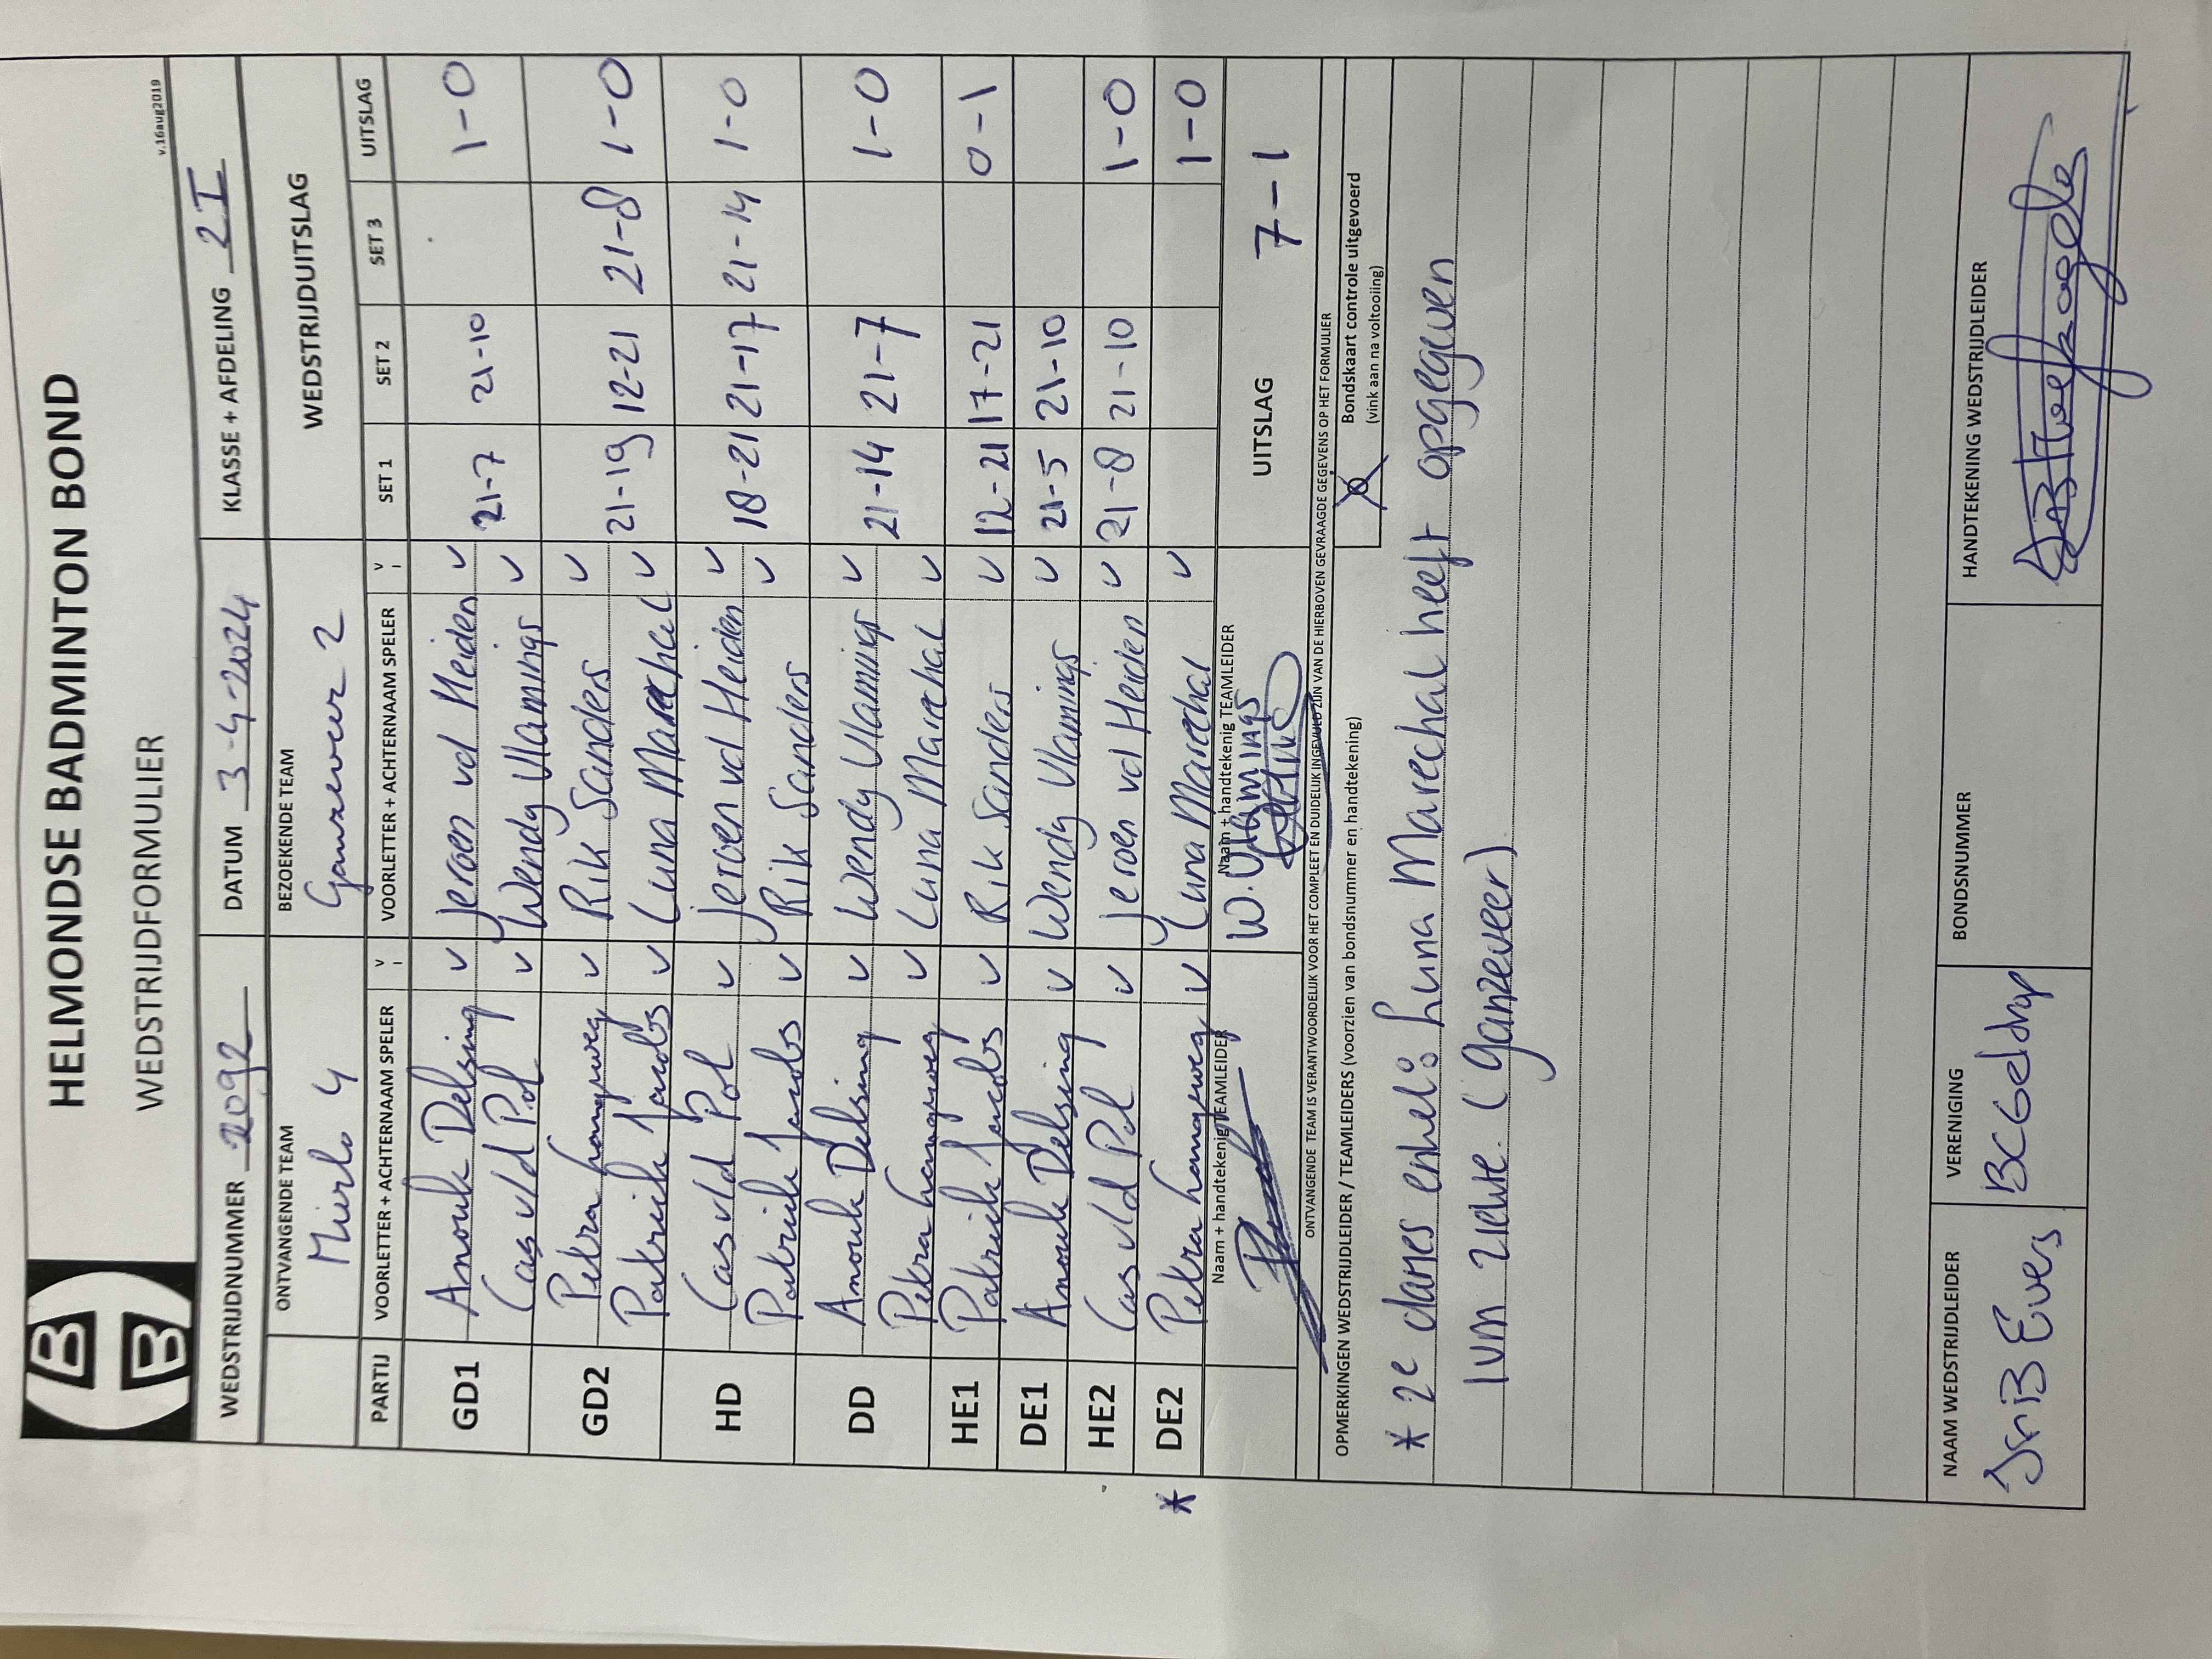 HELMONDSE BADMINTON BOND
WEDSTRIJDFORMULIER
v.16aug2019
WEDSTRIJDNUMMER 2092 DATUM 3-4-2024 KLASSE + AFDELING 2I
ONTVANGENDE TEAM BEZOEKENDE TEAM WEDSTRIJDUITSLAG
Mierlo 4 Ganzeveer 2
PARTIJ VOORLETTER + ACHTERNAAM SPELER V VOORLETTER + ACHTERNAAM SPELER V SET 1 SET 2 SET 3 UITSLAG
GD1 Anouk Delsing v Jeroen vd Heiden v 21-7 21-10 1-0
Cas v/d Pol v Wendy Vlamings v
GD2 Petra v Rik Sanders v 21-19 12-21 21-8 1-0
Patrick Jacobs v Luna Marechal v
HD Cas v/d Pol v Jeroen vd Heiden v 18-21 21-17 21-14 1-0
Patrick Jacobs v Rik Sanders v
DD Anouk Delsing v Wendy Vlamings v 21-14 21-7 1-0
Petra v Luna Marechal v
HE1 Patrick Jacobs v Rik Sanders v 12-21 17-21 0-1
DE1 Anouk Delsing v Wendy Vlamings v 21-5 21-10
HE2 Cas v/d Pol v Jeroen vd Heiden v 21-8 21-10 1-0
* DE2 Petra v Luna Marechal v 1-0
Naam + handtekenig TEAMLEIDER Naam + handtekenig TEAMLEIDER UITSLAG 7-1
W. Vlamings
ONTVANGENDE TEAM IS VERANTWOORDELIJK VOOR HET COMPLEET EN DUIDELIJK INGEVULD ZIJN VAN DE HIERBOVEN GEVRAAGDE GEGEVENS OP HET FORMULIER
OPMERKINGEN WEDSTRIJDLEIDER / TEAMLEIDERS (voorzien van bondsnummer en handtekening) Bondskaart controle uitgevoerd
(vink aan na voltooiing)
* 2e dames enkel: Luna Marechal heeft opgegeven
ivm ziekte. (Ganzeveer)
NAAM WEDSTRIJDLEIDER VERENIGING BONDSNUMMER HANDTEKENING WEDSTRIJDLEIDER
Evers BCGeldrop